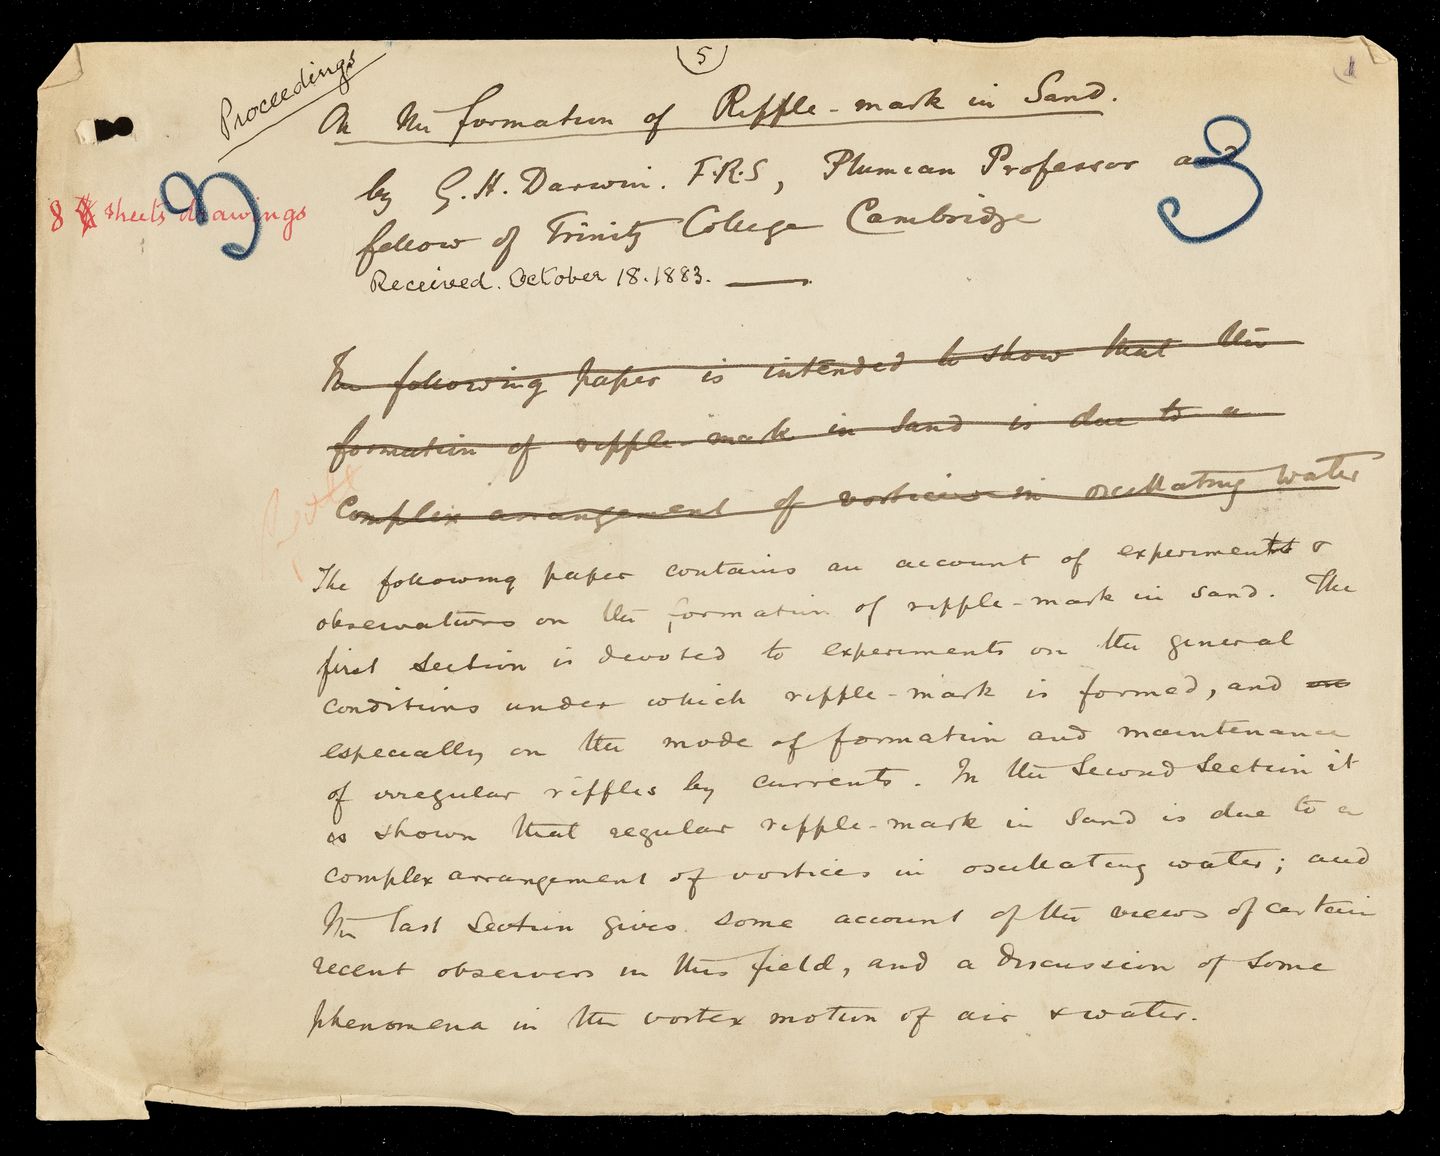 5
1
Proceedings
On the formation of Ripple-mark in Sand.
by G. H. Darwin. F.R.S, Plumian Professor and
8 sheets drawings
3
fellow of Trinity College Cambridge
Received. October 18. 1883.
The following paper is intended to show that the
formation of ripple-mark in sand is due to a
complex arrangement of vortices in oscillating water
The following paper contains an account of experiments &
observations on the formation of ripple-mark in sand. The
first section is devoted to experiments on the general
conditions under which ripple-mark is formed, and
especially on the mode of formation and maintenance
of irregular ripples by currents. In the second section it
is shown that regular ripple-mark in sand is due to a
complex arrangement of vortices in oscillating water; and
the last section gives some account of the views of certain
recent observers in this field, and a discussion of some
phenomena in the vortex motion of air & water.